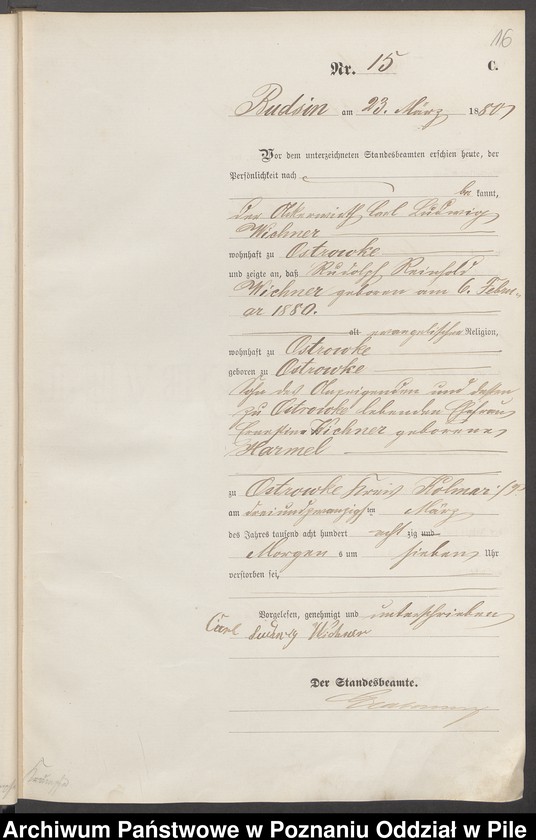 16
Nr. 15 C.
Budsin am 23. März 1880
Vor dem unterzeichneten Standesbeamten erschien heute, der
Persönlichkeit nach
be kannt,
der Ackerwirth Carl Ludwig
Wichner
wohnhaft zu Ostrowke
und zeigte an, daß Rudolph Reinhold
Wichner geboren am 6. Febru-
ar 1880.
alt evangelischer Religion,
wohnhaft zu Ostrowke
geboren zu Ostrowke
Sohn des Anzeigenden und dessen
zu Ostrowke lebenden Ehefrau
Ernestine Wichner geborene
Harmel
zu Ostrowke Kreis Kolmar i/P
am dreiundzwanzigsten März
des Jahres tausend acht hundert acht zig und
Morgens um sieben Uhr
verstorben sei,
Vorgelesen, genehmigt und unterschrieben
Carl Ludwig Wichner
Der Standesbeamte.
Archiwum Państwowe w Poznaniu Oddział w Pile